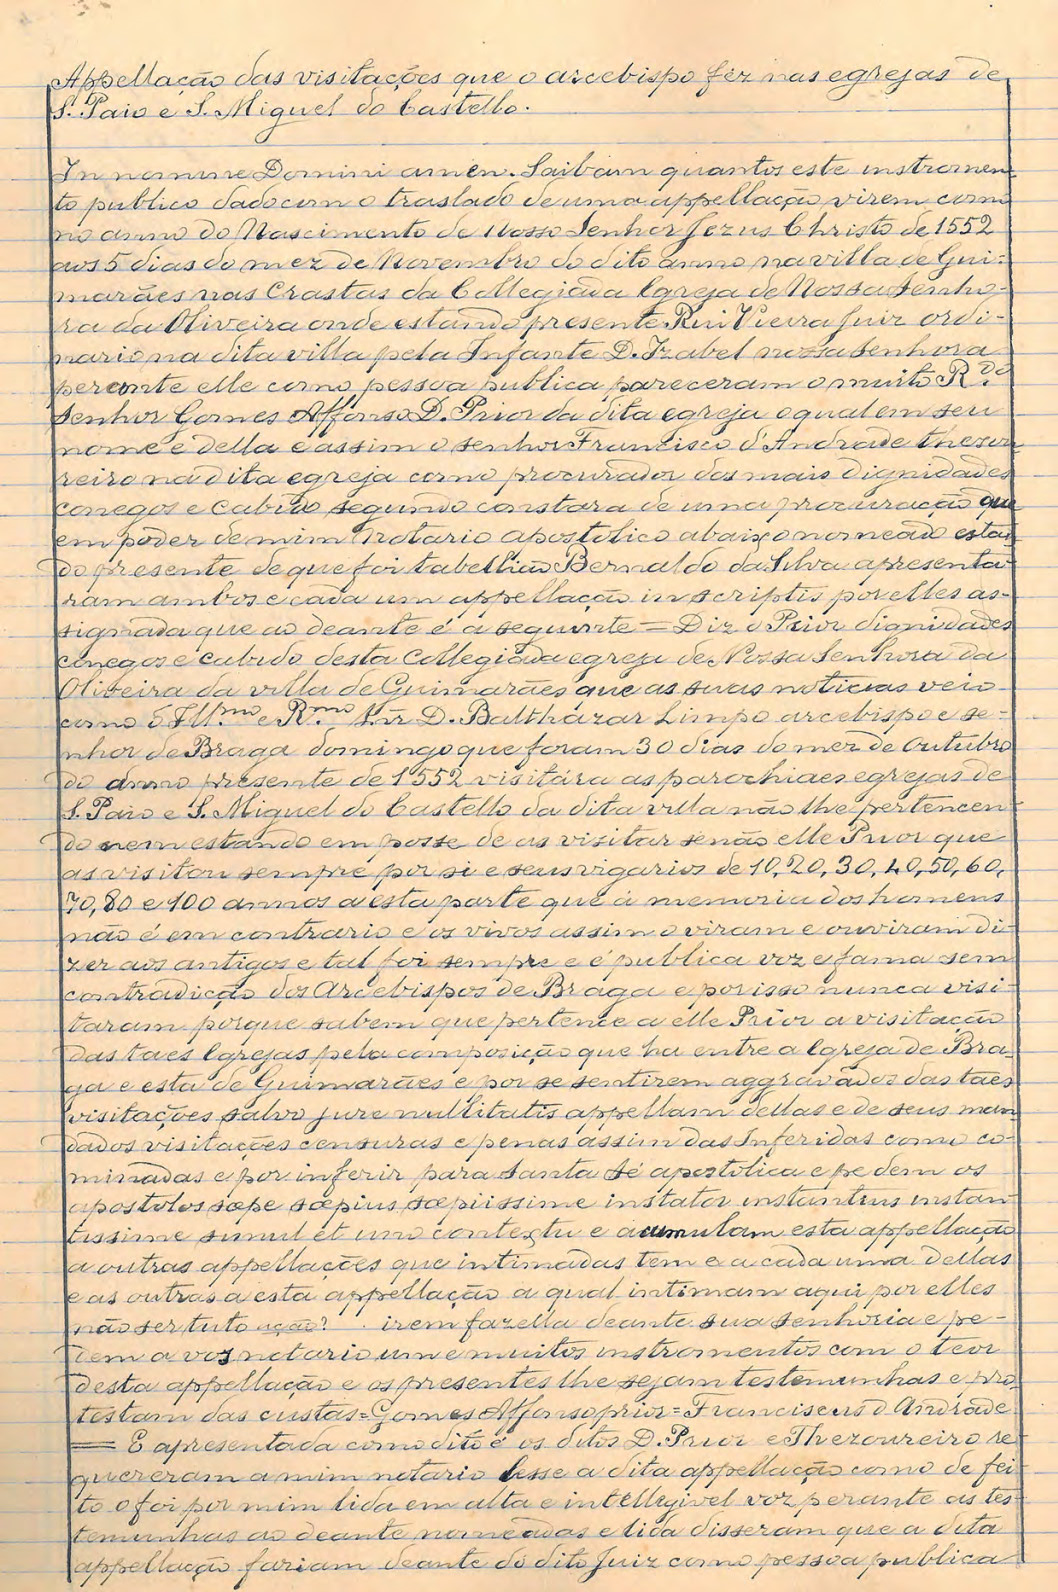 Appellação das visitações que o arcebispo fez nas egrejas de
S. Paio e S. Miguel do Castello.
In nomine Domini amen. Saibam quantos este instromen-
to publico dado com o traslado de uma appellação virem como
no anno do Nascimento de Nosso Senhor Jezus Christo de 1552
aos 5 dias do mez de Novembro do dito anno na villa de Gui-
marães nas Crastas da Collegiada Igreja de Nossa Senho-
ra da Oliveira onde estando presente Rui Vieira Juiz ordi-
nario na dita villa pela Infante D. Izabel nossa senhora
perante elle como pessoa publica pareceram o muito R.do
Senhor Gomes Affonso D. Prior da dita egreja o qual em seu
nome e della e assim o senhor Francisco d'Andrade thesou-
reiro na dita egreja como procurador dos mais dignidades
conegos e cabido segundo constara de uma procuração que
em poder de mim Notario apostolico abaixo nomeado está
do presente de que foi tabellião Bernaldo da Silva apresenta-
ram ambos e cada um appellação in scriptis por elles as-
signada que ao deante é a seguinte = Diz o Prior dignidades
conegos e cabido desta Collegiada egreja de Nossa Senhora da
Oliveira da villa de Guimarães que as suas noticias veio
como o Ill.mo e R.mo Snr D. Balthazar Limpo arcebispo e se-
nhor de Braga domingo que foram 30 dias do mez de Outubro
do anno presente de 1552 visitára as parochiaes egrejas de
S. Paio e S. Miguel do Castello da dita villa não lhe pertencen-
do nem estando em posse de as visitar senão elle Prior que
as visitou sempre por si e seus vigarios de 10, 20, 30, 40, 50, 60,
70, 80 e 100 annos a esta parte que a memoria dos homens
não é em contrario e os vivos assim o viram e ouviram di-
zer aos antigos e tal foi sempre e é publica voz e fama sem
contradicção dos Arcebispos de Braga e por isso nunca visi-
taram porque sabem que pertence a elle Prior a visitação
das taes Igrejas pela composição que ha entre a Igreja de Bra-
ga e esta de Guimarães e por se sentirem aggravados das taes
visitações salvo jure nullitatis appellam dellas e de seus man-
dados visitações censuras e penas assim das Inferidas como co-
minadas e por inferir para Santa Sé apostolica e pedem os
apostolos sæpe sæpius sæpiissime instator instantius instan-
tissime simul et uno contextu e acumulam esta appellação
a outras appellações que intimadas tem e a cada uma dellas
e as outras a esta appellação a qual intimam aqui por elles
não ser tuto ação? . irem fazella deante sua senhoria e pe-
dem a vos notario um e muitos instromentos com o teor
desta appellação e os presentes lhe sejam testemunhas e pro-
testam das custas = Gomes Affonso prior = Franciscus d'Andrade
= E apresentada como dito é os ditos D. Prior e Thezoureiro re-
quereram a mim notario lesse a dita appellação como de fei-
to o foi por mim lida em alta e intellegivel voz perante as tes-
temunhas ao deante nomeadas e lida disseram que a dita
appellação fariam deante do dito Juiz como pessoa publica